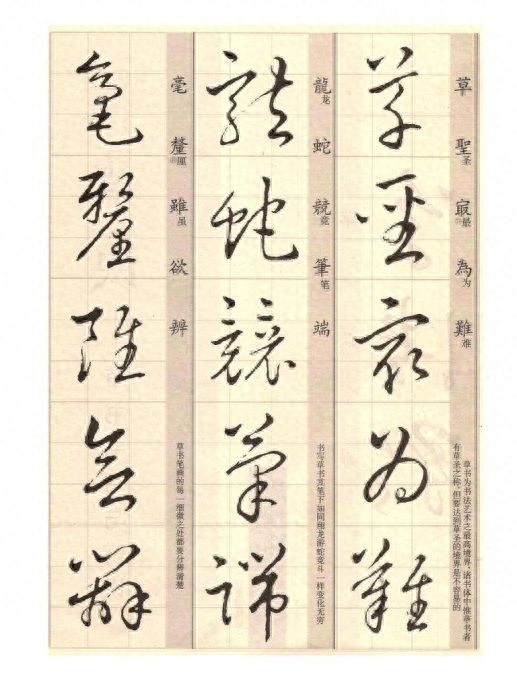 草聖㝡為難
草聖圣㝡最為为難难
草书为书法艺术之最高境界,诸书体中惟草书者
有草圣之称,但要达到草圣的境界是不容易的
龍蛇競筆端
龍龙蛇競竞筆笔端
书写草书其笔下如同翔龙游蛇竞斗一样变化无穷
毫釐雖欲辨
毫釐厘雖虽欲辨
草书笔画的每一细微之处都要分辨清楚